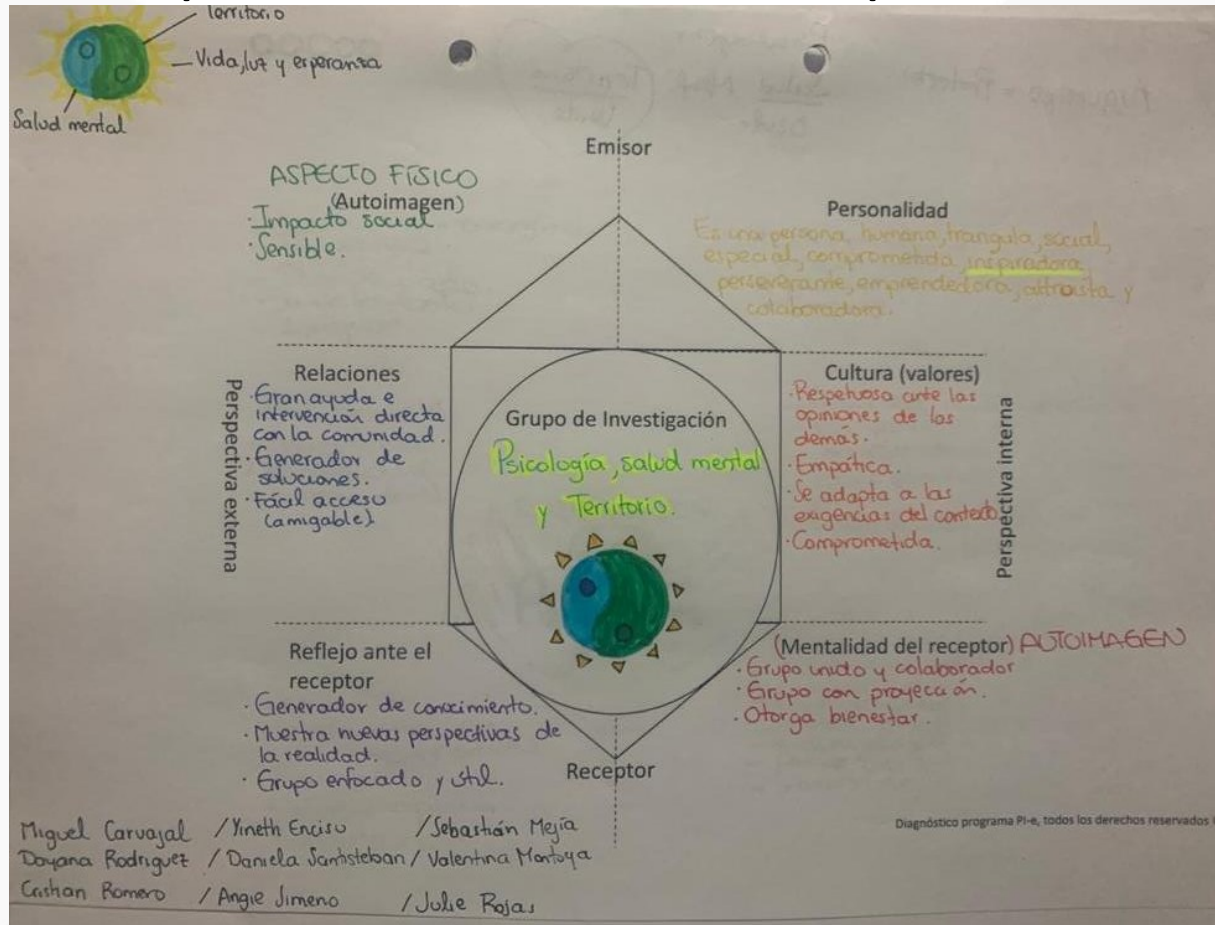 Territorio
Vida, luz y esperanza
Salud mental
Emisor
ASPECTO FÍSICO
(Autoimagen)
· Impacto social
· Sensible.
Personalidad
Es una persona, humana, tranquila, social,
especial, comprometida, inspiradora,
perseverante, emprendedora, altruista y
colaboradora.
Perspectiva externa
Relaciones
· Gran ayuda e
intervención directa
con la comunidad.
· Generador de
soluciones.
· Fácil acceso
(amigable)
Grupo de Investigación
Psicología, salud mental
y Territorio.
Cultura (valores)
· Respetuosa ante las
opiniones de los
demás.
· Empática.
· Se adapta a las
exigencias del contexto
· Comprometida.
Perspectiva interna
Reflejo ante el
receptor
· Generador de conocimiento.
· Muestra nuevas perspectivas de
la realidad.
· Grupo enfocado y útil.
(Mentalidad del receptor) AUTOIMAGEN
· Grupo unido y colaborador
· Grupo con proyección.
· Otorga bienestar.
Receptor
Diagnóstico programa PI-e, todos los derechos reservados
Miguel Carvajal / Yineth Enciso / Sebastián Mejía
Dayana Rodriguez / Daniela Santisteban / Valentina Montoya
Cristian Romero / Angie Jimeno / Julie Rojas